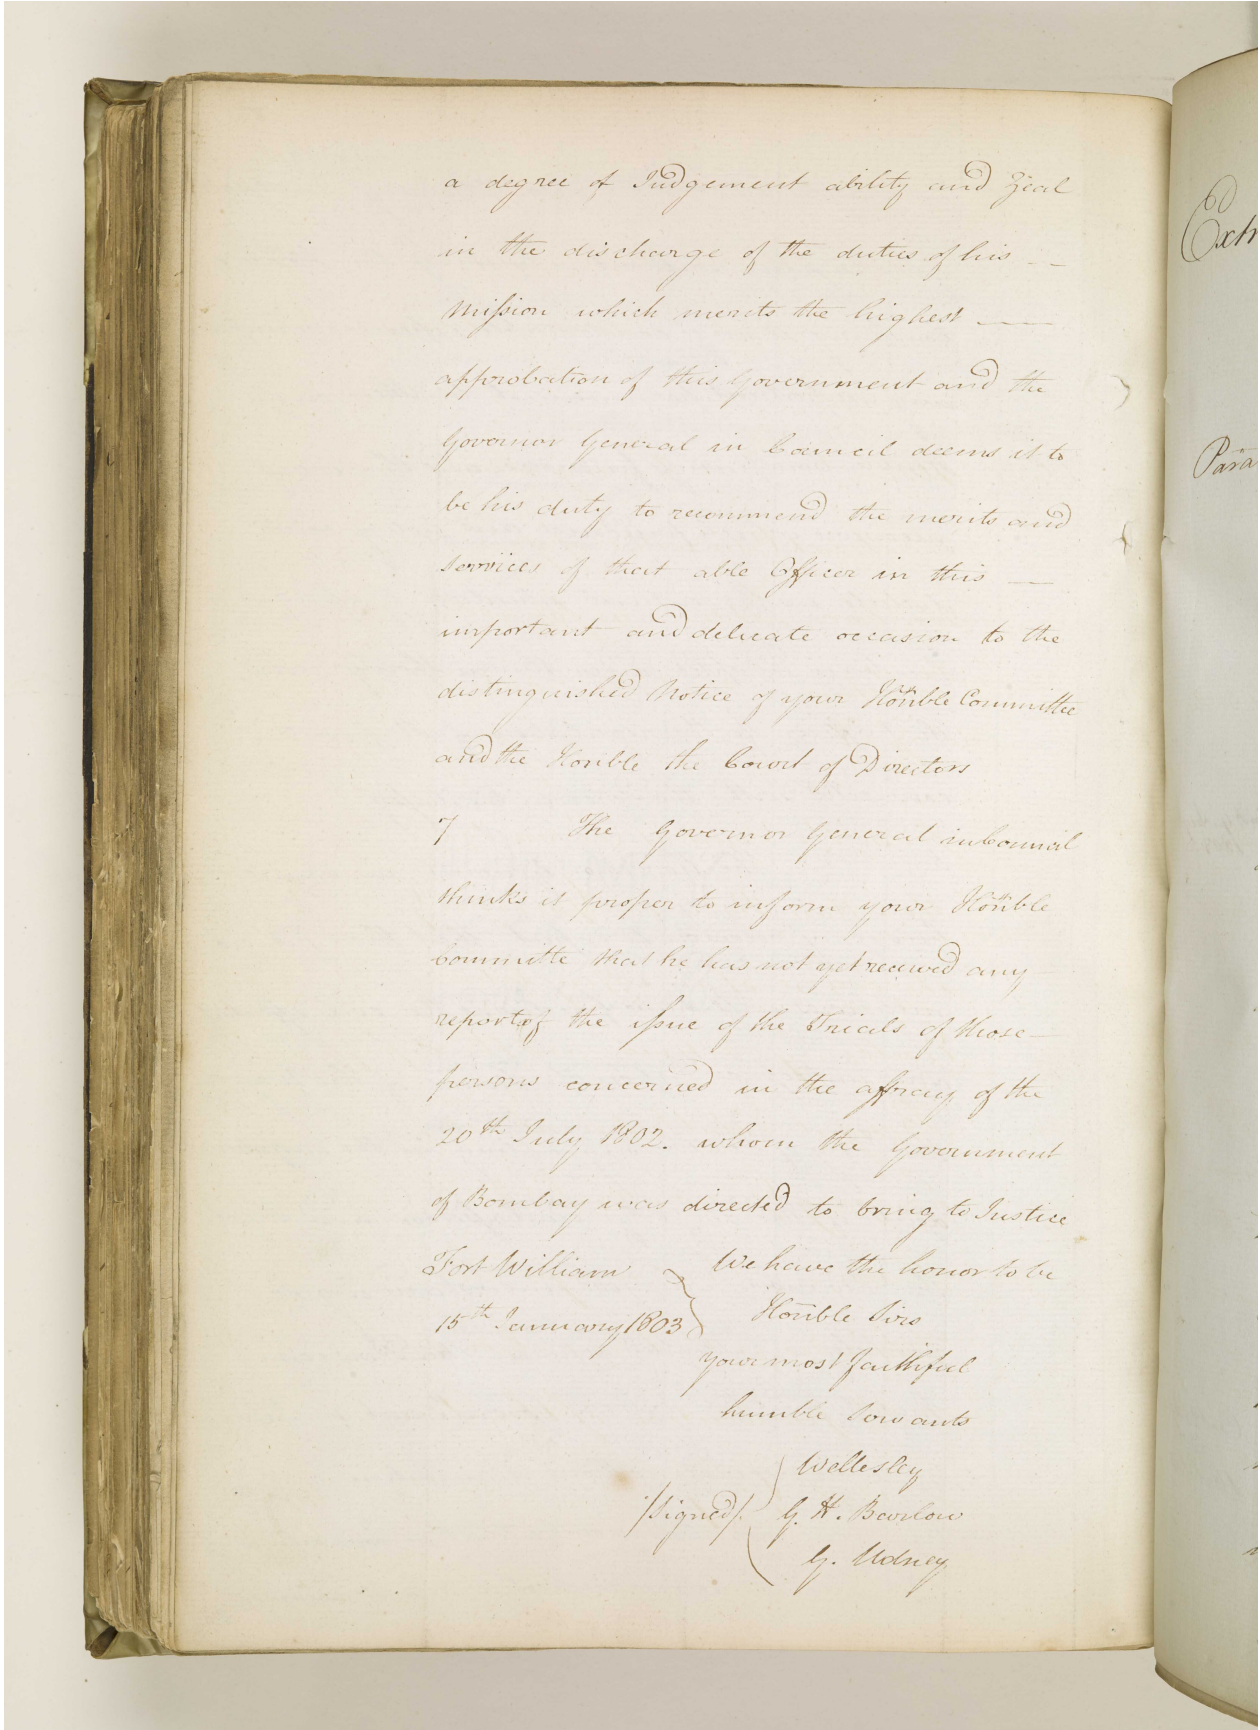 a degree of Judgement ability and Zeal
in the discharge of the duties of his
Mission which merits the highest
approbation of this Government and the
Governor General in Council deems it to
be his duty to recommend the merits and
services of that able Officer in this
important and delicate occasion to the
distinguished Notice of your Honble Committee
and the Honble the Court of Directors
7 The Governor General in Council
thinks it proper to inform your Honble
Committe that he has not yet received any
report of the issue of the Trials of those
persons concerned in the affray of the
20th July 1802. whom the Government
of Bombay was directed to bring to Justice
Fort William We have the honor to be
15th January 1803 Honble Sirs
your most faithful
humble Servants
Wellesley
/signed/. G. H. Barlow
G. Udney
Extr
Para